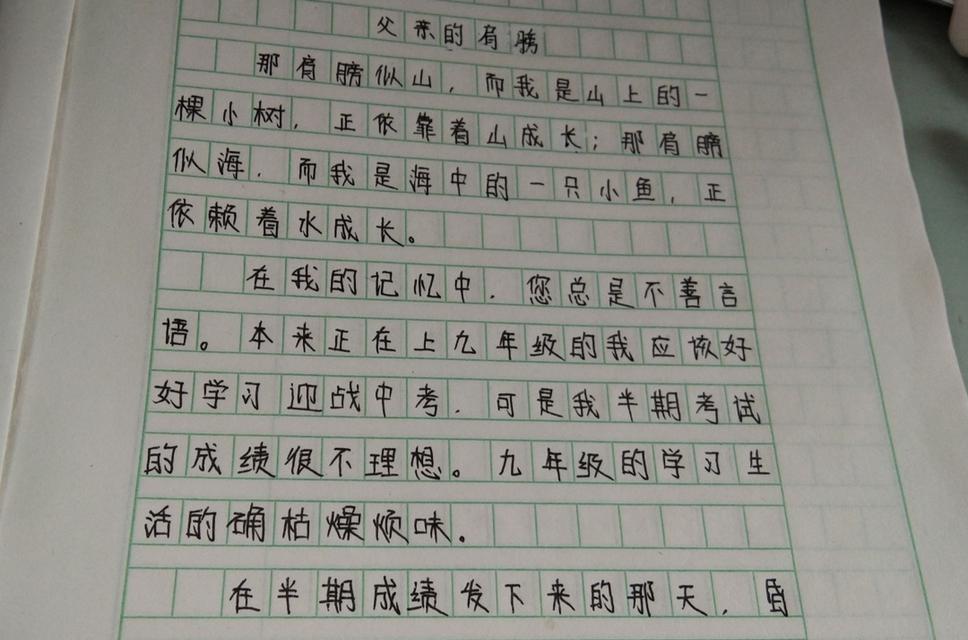 父亲的肩膀
那肩膀似山，而我是山上的一
棵小树，正依靠着山成长；那肩膀
似海，而我是海中的一只小鱼，正
依赖着水成长。
在我的记忆中，您总是不善言
语。本来正在上九年级的我应该好
好学习迎战中考，可是我半期考试
的成绩很不理想。九年级的学习生
活的确枯燥烦味。
在半期成绩发下来的那天，昏